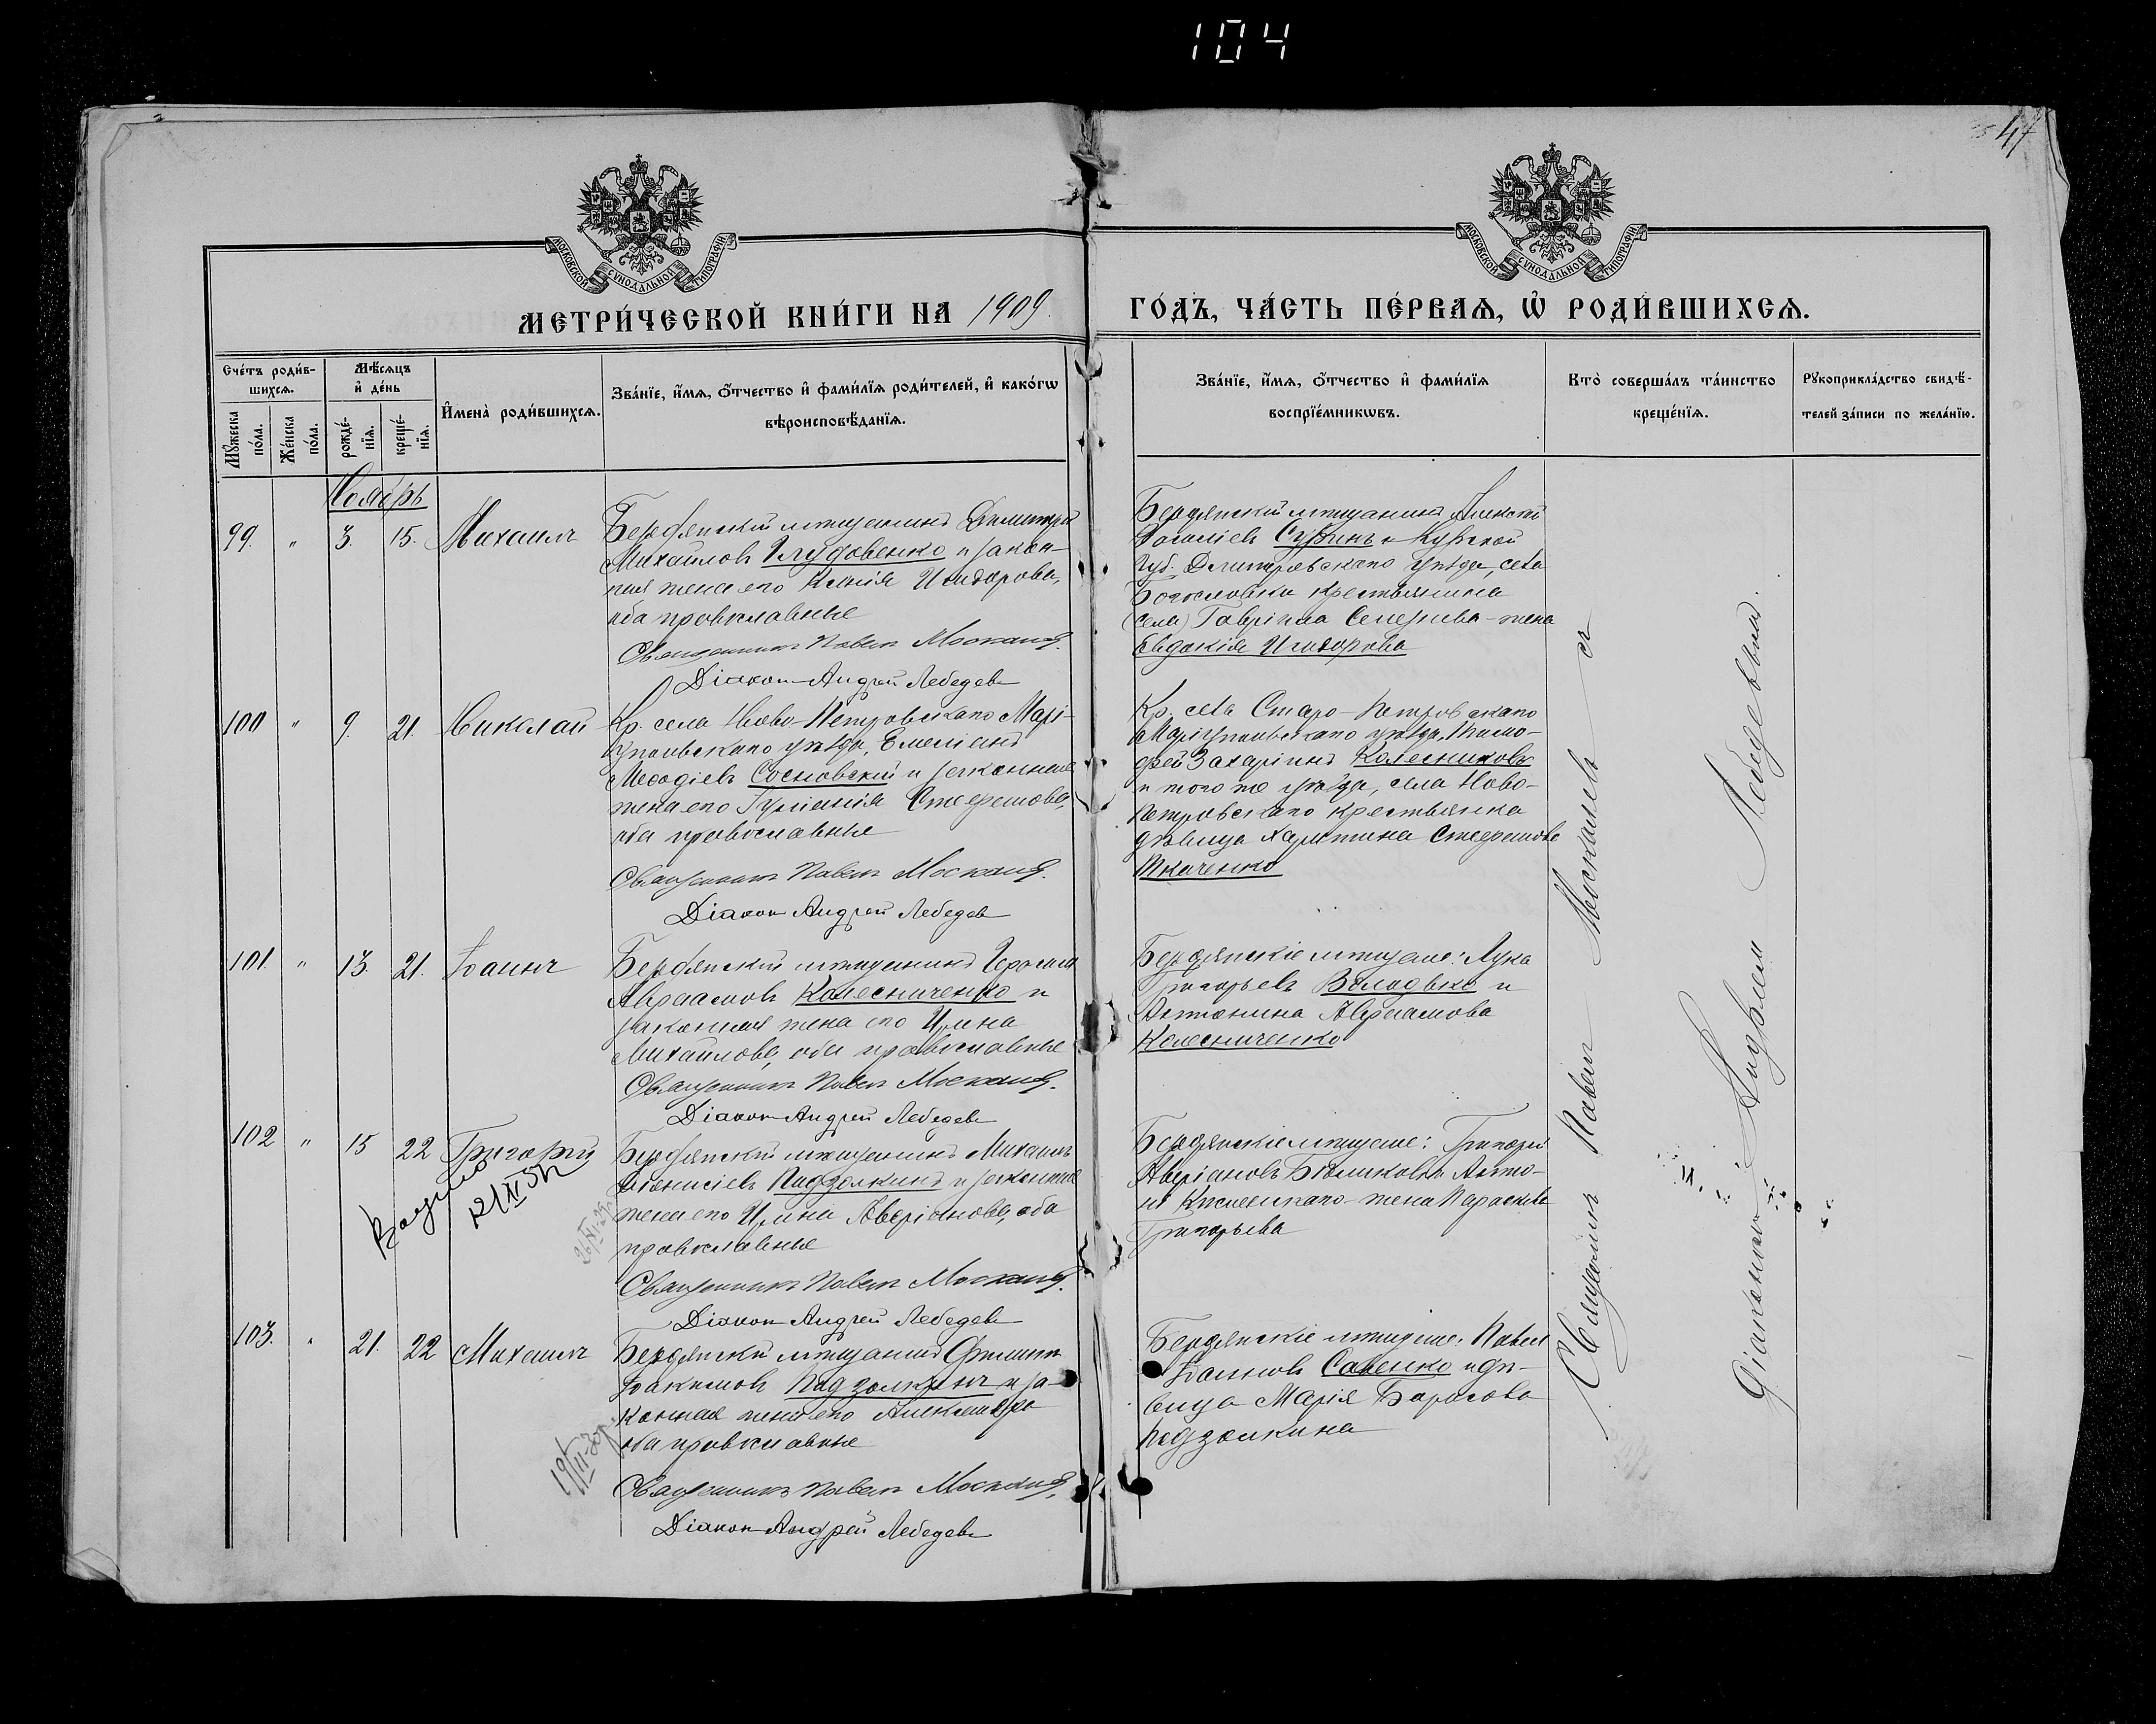 104
47
МОСКОВСКОЙ СѴНОДАЛЬНОЙ ТИПОГРАФІИ
МОСКОВСКОЙ СѴНОДАЛЬНОЙ ТИПОГРАФІИ
МЕТРИ́ЧЕСКОЙ КНИ́ГИ НА 1909.
ГО́ДЪ, ЧА́СТЬ ПЕ́РВАѦ, Ѡ҆ РОДИ́ВШИХСѦ.
Сче́тъ роди́в-
шихсѧ.
Мѣ́сѧцъ
и҆ де́нь
Мꙋ́жеска
по́ла.
Же́нска
по́ла.
рожде́-
нїѧ.
креще́-
нїѧ.
И҆мена̀ роди́вшихсѧ.
Зва́нїе, и҆́мѧ, ѻ҆́тчество и҆ фами́лїѧ роди́телей, и҆ како́гѡ
вѣроисповѣ́данїѧ.
Зва́нїе, и҆́мѧ, ѻ҆́тчество и҆ фами́лїѧ
воспрїе́мникѡвъ.
Кто̀ соверша́лъ та́инство
креще́нїѧ.
Рꙋкоприкла́дство свидѣ́-
телей за́писи по жела́нїю.
Ноябрь
99. " 3. 15. Михаилъ
Бердянскій мѣщанинъ Димитрій
Михайловъ Глудовенко и закон-
ная жена его Исидорова,
оба православные
Священникъ Павелъ Москалевъ.
Діаконъ Андрей Лебедевъ
Бердянскій мѣщанинъ Алексѣй
и Курской
Губ. Дмитріевскаго уѣзда, села
Богословки крестьянина
(села) Гавріила жена
Евдокія Исидорова
100 " 9. 21. Николай
Кр. села Ново-Петровскаго Марі-
упольскаго уѣзда, Емеліанъ
Меѳодіевъ Сосновскій и законная
жена его Іуліанія Стефанова,
оба православные
Священникъ Павелъ Москалевъ.
Діаконъ Андрей Лебедевъ
Кр. села Старо-Петровскаго
Маріупольскаго уѣзда, Тимо-
фей Захаріинъ Колесниковъ
и того же уѣзда, села Ново-
Петровскаго крестьянка
дѣвица Харитина Стефанова
Ткаченко
101. " 13. 21. Іоаннъ
Бердянскій мѣщанинъ Герасимъ
Авраамовъ Колесниченко и
законная жена его Ирина
Михайлова, оба православные
Священникъ Павелъ Москалевъ.
Діаконъ Андрей Лебедевъ
Бердянскіе мѣщане: Лука
Григорьевъ Володько и
Антонина Авраамова
Колесниченко
102 " 15 22 Григорій
Бердянскій мѣщанинъ Михаилъ
Діонисіевъ Подзолкинъ и законная
жена его Ирина Аверіанова, оба
православные
Священникъ Павелъ Москалевъ.
Діаконъ Андрей Лебедевъ
Бердянскіе мѣщане: Григорій
Аверіановъ Бѣликовъ и Анто-
жена Параскева
Григорьева
103. " 21. 22 Михаилъ
Бердянскій мѣщанинъ Филиппъ
Іоакимовъ Подзолкинъ и за-
конная жена его Александра
оба православные
Священникъ Павелъ Москалевъ.
Діаконъ Андрей Лебедевъ
Бердянскіе мѣщане: Павелъ
Іоанновъ Савенко и дѣ-
вица Марія Борисова
Подзолкина
Священникъ Павелъ Москалевъ съ
Діакономъ Андреем Лебедевымъ.